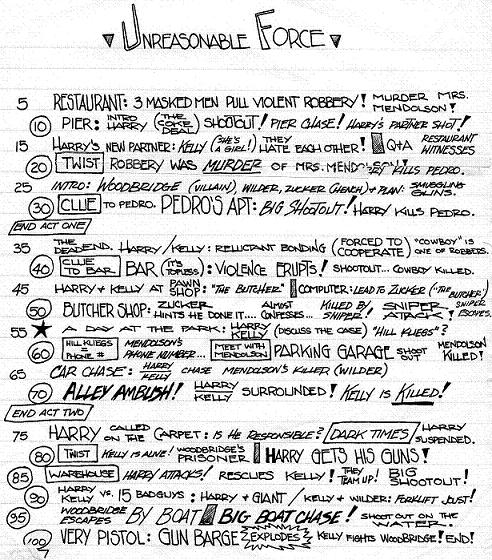 UNREASONABLE FORCE
5 RESTAURANT: 3 MASKED MEN PULL VIOLENT ROBBERY! MURDER MRS. MENDOLSON!
10 PIER: INTRO HARRY (THE COKE DEAL) SHOOTOUT! PIER CHASE! HARRY'S PARTNER SHOT!
15 HARRY'S NEW PARTNER: KELLY (SHE'S A GIRL!) THEY HATE EACH OTHER! Q&A RESTAURANT WITNESSES
20 TWIST ROBBERY WAS MURDER OF MRS. KILLS PEDRO.
25 INTRO: WOODBRIDGE (VILLAIN), WILDER, ZUCKER (HENCH) & PLAN: SMUGGLING GUNS.
30 CLUE TO PEDRO. PEDRO'S APT: BIG SHOOTOUT! HARRY KILLS PEDRO.
END ACT ONE
35 THE DEADEND. HARRY/KELLY: RELUCTANT BONDING (FORCED TO COOPERATE) "COWBOY" IS ONE OF ROBBERS.
40 CLUE TO BAR BAR (IT'S TOPLESS): VIOLENCE ERUPTS! SHOOTOUT... COWBOY KILLED.
45 HARRY & KELLY AT PAWN SHOP: "THE BUTCHER" COMPUTER: LEAD TO ZUCKER ("THE BUTCHER")
50 BUTCHER SHOP: ZUCKER HINTS HE DONE IT... ALMOST CONFESSES... KILLED BY SNIPER! SNIPER ATTACK! SNIPER ESCAPES.
55 ★ A DAY AT THE PARK: HARRY KELLY (DISCUSS THE CASE) "HILL KLIEGS"?
60 HILL KLIEGS = PHONE # MENDOLSON'S PHONE NUMBER... MEET WITH MENDOLSON PARKING GARAGE SHOOT OUT MENDOLSON KILLED!
65 CAR CHASE: HARRY KELLY CHASE MENDOLSON'S KILLER (WILDER)
70 ALLEY AMBUSH! HARRY KELLY SURROUNDED! KELLY IS KILLED!
END ACT TWO
75 HARRY CALLED ON THE CARPET: IS HE RESPONSIBLE? DARK TIMES HARRY SUSPENDED.
80 TWIST KELLY IS ALIVE! WOODBRIDGE'S PRISONER. HARRY GETS HIS GUNS!
85 WAREHOUSE HARRY ATTACKS! RESCUES KELLY! THEY TEAM UP! BIG SHOOTOUT!
90 HARRY KELLY VS. 15 BADGUYS: HARRY & GIANT / KELLY & WILDER: FORKLIFT JOUST!
95 WOODBRIDGE ESCAPES BY BOAT BIG BOAT CHASE! SHOOT OUT ON THE WATER.
100 VERY PISTOL: GUN BARGE EXPLODES KELLY FIGHTS WOODBRIDGE! END!